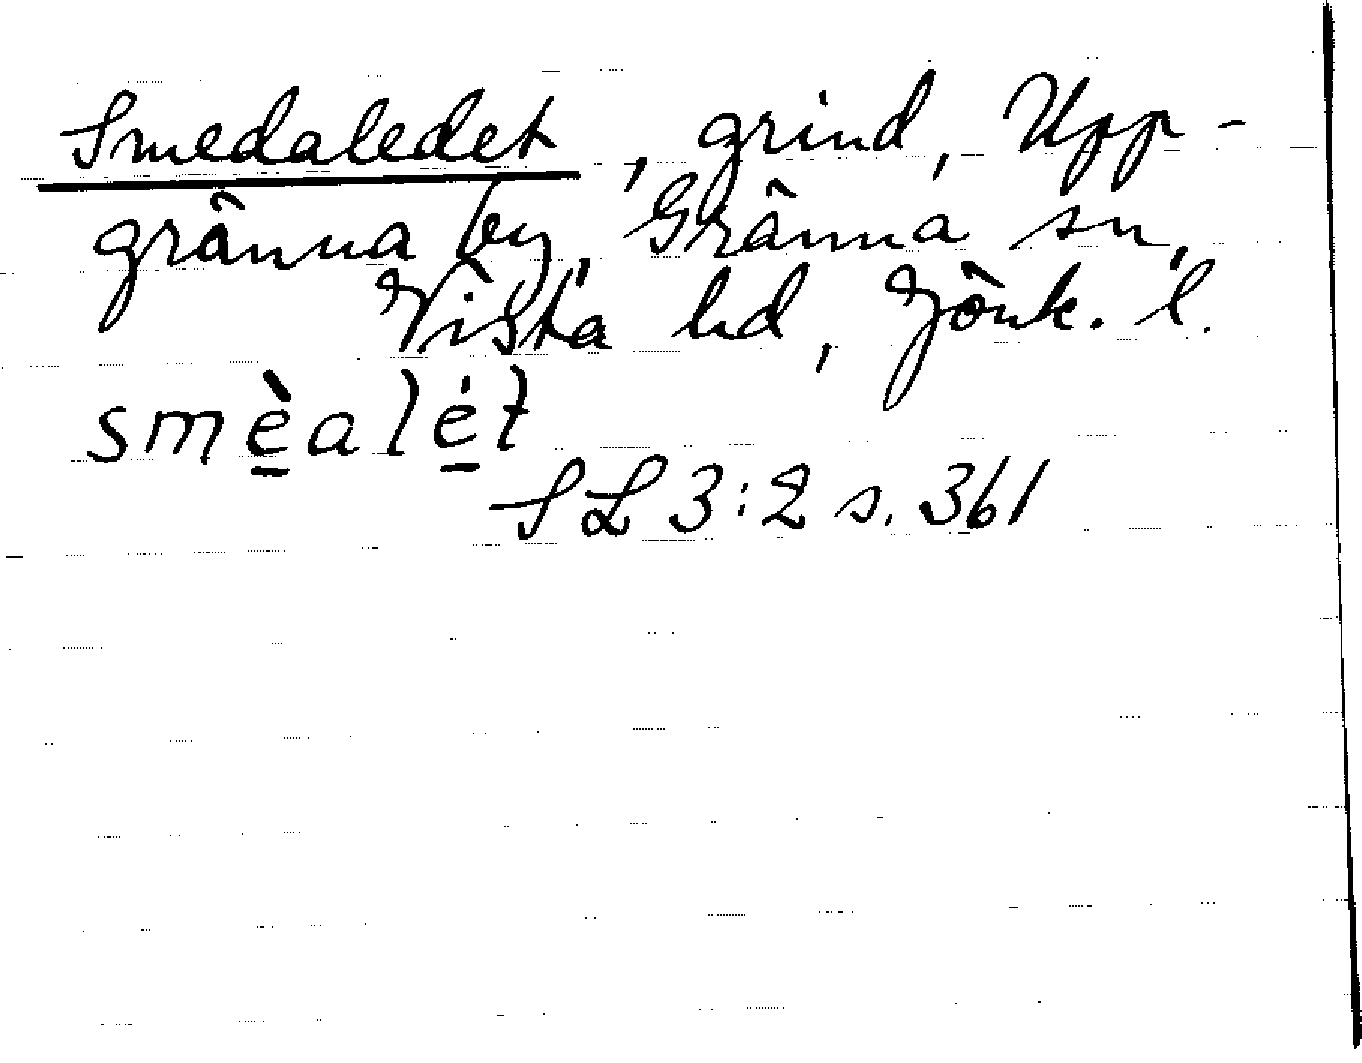 Smedaledet, grind, Upp-
gränna by, Gränna sn,
Vista hd, Jönk. l.
smè̱alé̱t
SL 3:2 s. 361